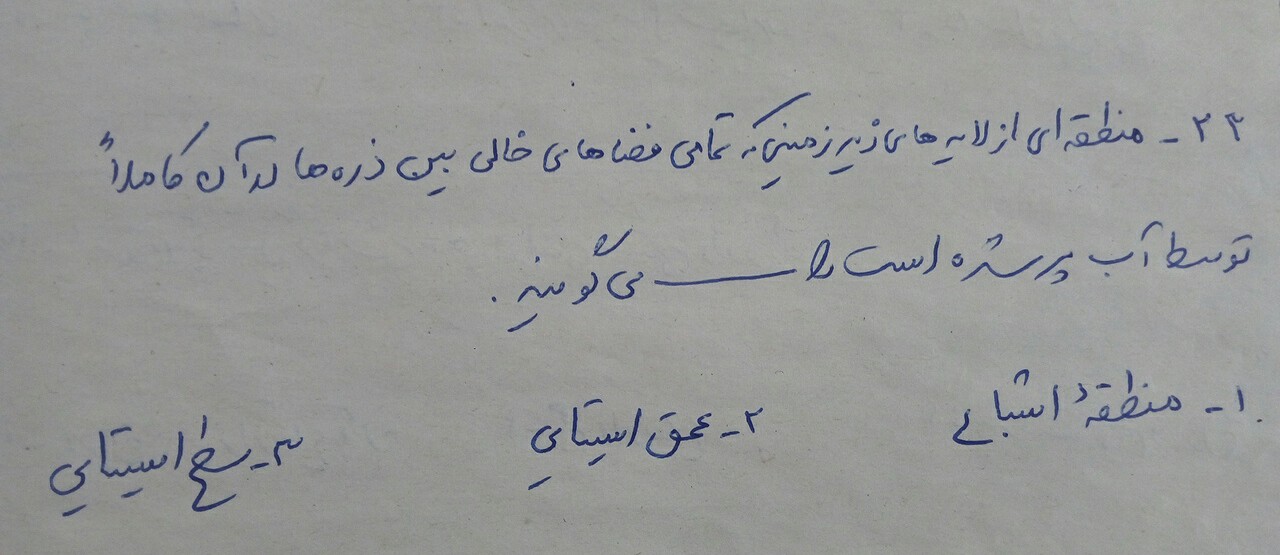 ۲۳- منطقه ای از لایه های زیر زمینی که تمامی فضاهای خالی بین ذره ها در آن کاملاً
توسط آب پر شده است را ـــــ می گویند .
۱- منطقهٔ اشباع ۲- عمق ایستایی ۳- سطح ایستایی